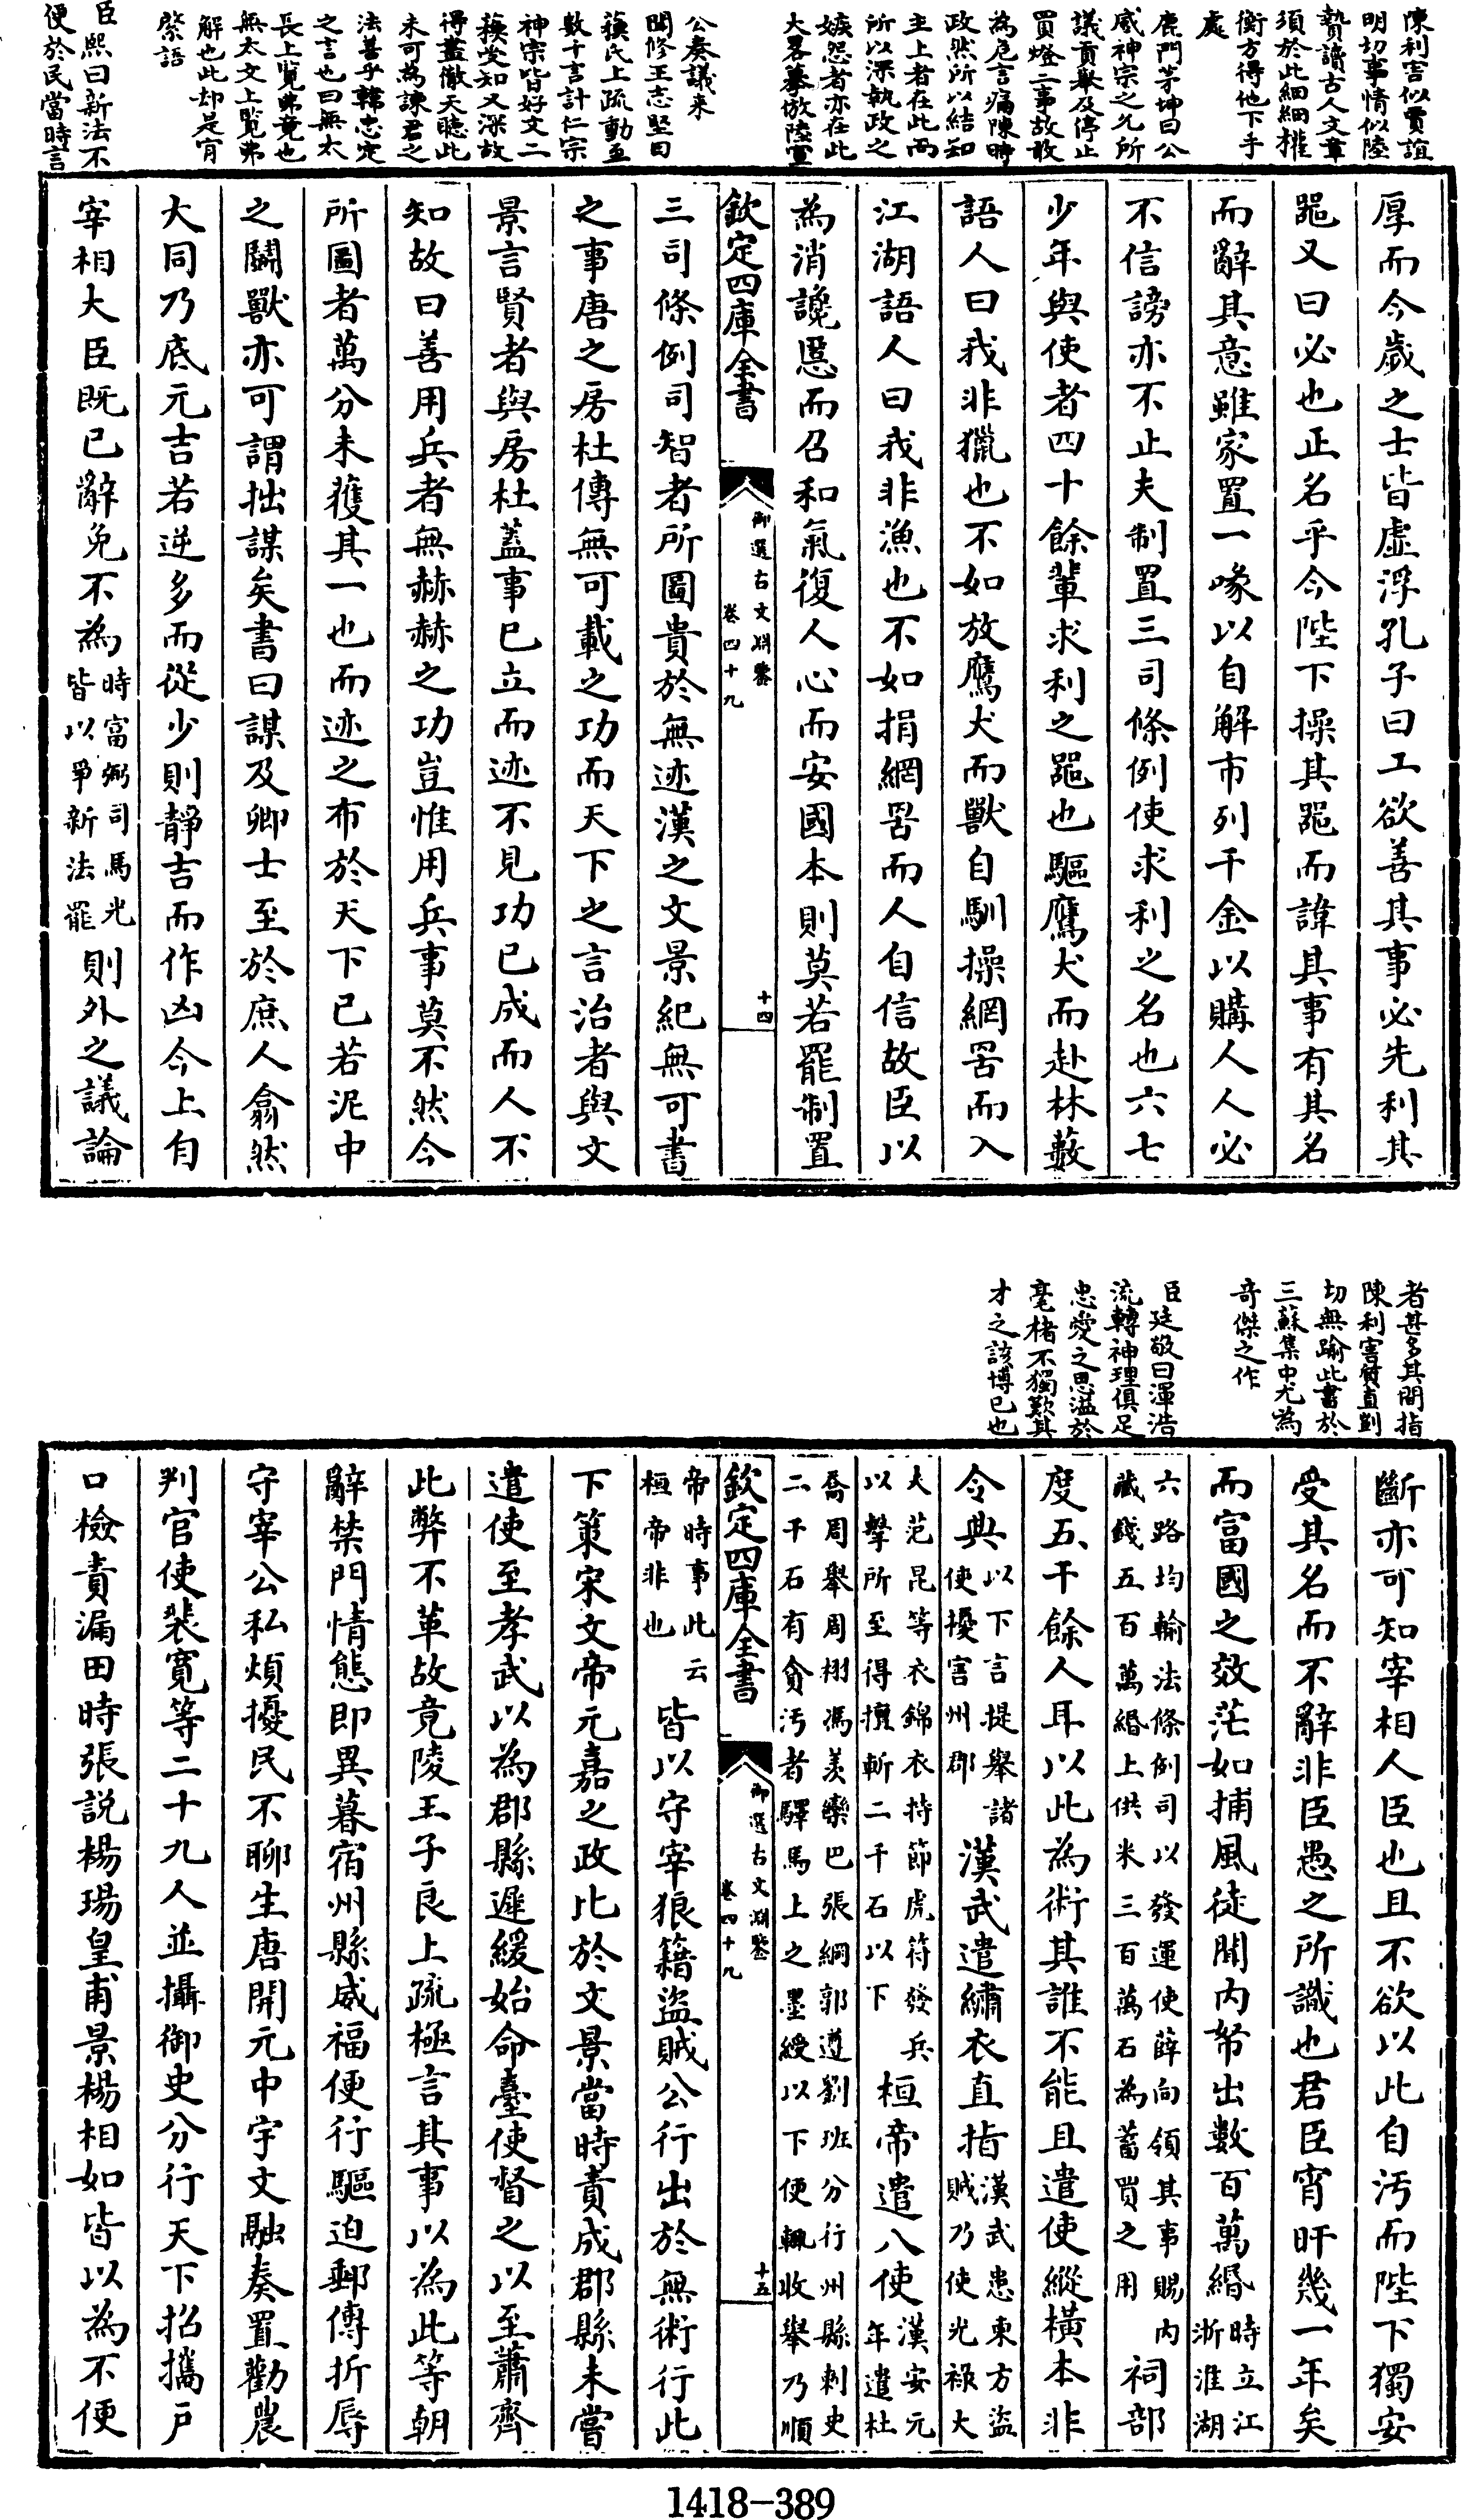 陳利害似賈誼
明切事情似陸
贄讀古人文章
須於此細細權
衡方得他下手
處
鹿門茅坤曰公
感神宗之允所
議貢舉及停止
買燈二事故敢
為危言痛陳時
政然所以結知
主上者在此而
所以深執政之
嫉怨者亦在此
大畧摹倣陸宣
公奏議来
閩修王志堅曰
蘇氏上疏動至
數千言計仁宗
神宗皆好文二
蘇受知又深故
得盡徹天聽此
未可為諫君之
法善乎韓忠定
之言也曰無太
長上覽弗竟也
無太文上覽弗
解也此却是宵
棨語
臣熙曰新法不
便於民當時言
厚而今歲之士皆虛浮孔子曰工欲善其事必先利其
噐又曰必也正名乎今陛下操其噐而諱其事有其名
而辭其意雖家置一喙以自解市列千金以購人人必
不信謗亦不止夫制置三司條例使求利之名也六七
少年與使者四十餘輩求利之噐也驅鷹犬而赴林藪
語人曰我非獵也不如放鷹犬而獸自馴操網罟而入
江湖語人曰我非漁也不如捐網罟而人自信故臣以
為消讒慝而召和氣復人心而安國本則莫若罷制置
欽定四庫全書
御選古文淵鑒
卷四十九
十四
三司條例司智者所圖貴於無迹漢之文景紀無可書
之事唐之房杜傳無可載之功而天下之言治者與文
景言賢者與房杜蓋事已立而迹不見功已成而人不
知故曰善用兵者無赫赫之功豈惟用兵事莫不然今
所圖者萬分未獲其一也而迹之布於天下已若泥中
之鬭獸亦可謂拙謀矣書曰謀及卿士至於庶人翕然
大同乃底元吉若逆多而從少則靜吉而作凶今上自
宰相大臣既已辭免不為時富弼司馬光皆以爭新法罷則外之議論
者甚多其間指
陳利害質直剴
切無踰此書於
三蘇集中尤為
奇傑之作
臣廷敬曰渾浩
流轉神理俱足
忠愛之思溢於
毫楮不獨歎其
才之該博已也
斷亦可知宰相人臣也且不欲以此自汚而陛下獨安
受其名而不辭非臣愚之所識也君臣宵旰幾一年矣
而富國之效茫如捕風徒聞內帑出數百萬緡時立江浙淮湖
六路均輸法條例司以發運使薛向領其事賜內藏錢五百萬緡上供米三百萬石為蓄買之用祠部
度五千餘人耳以此為術其誰不能且遣使縱橫本非
令典以下言提舉諸使擾害州郡漢武遣繡衣直指漢武患東方盜賊乃使光祿大
夫范昆等衣錦衣持節虎符發兵以擊所至得擅斬二千石以下桓帝遣八使漢安元年遣杜
喬周舉周栩馮羨欒巴張綱郭遵劉班分行州縣刺史二千石有貪汚者驛馬上之墨綬以下便輒收舉乃順
欽定四庫全書
御選古文淵鑒
卷四十九
十五
帝時事此云桓帝非也皆以守宰狼籍盜賊公行出於無術行此
下策宋文帝元嘉之政比於文景當時責成郡縣未嘗
遣使至孝武以為郡縣遲緩始命臺使督之以至蕭齊
此弊不革故竟陵王子良上疏極言其事以為此等朝
辭禁門情態即異暮宿州縣威福便行驅迫郵傳折辱
守宰公私煩擾民不聊生唐開元中宇文融奏置勸農
判官使裴寬等二十九人並攝御史分行天下招攜戶
口檢責漏田時張説楊瑒皇甫景楊相如皆以為不便
1418-389